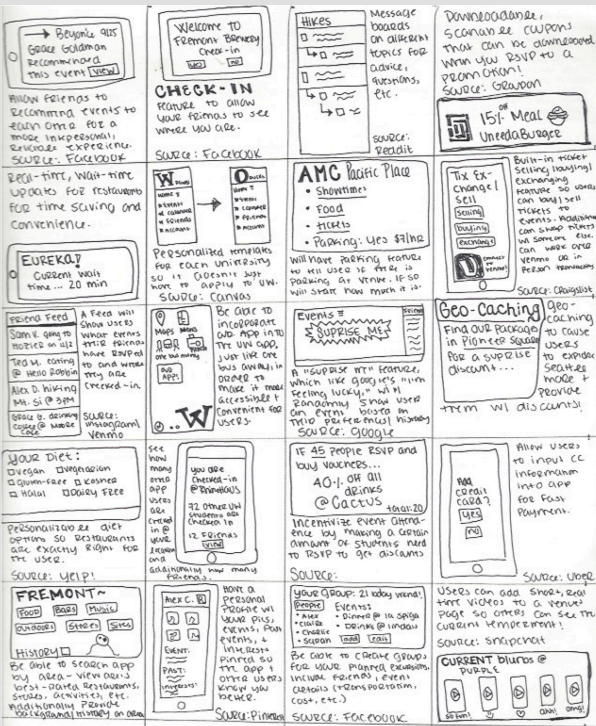 → Beyonce 9/25
Grace Goldman
recommend
this event VIEW
Allow friends to
recommend events to
each other for a
more inkpersonal,
reliable experience.
Source: Facebook
Welcome to
Fremont Brewery
Check-in
yes no
CHECK-IN
feature to allow
your friends to see
where you are.
Source: Facebook
Hikes
Message
boards
on different
topics for
advice,
questions,
etc.
Source:
Reddit
Downloadable,
scanable coupons
that can be downloaded
when you RSVP to a
promotion!
Source: Groupon
15% off Meal
Uneeda Burger
Real-time, wait-time
updates for restaurants
for time saving and
convenience.
EUREKA!
Current wait
time... 20 min
W
Home
Events
Calendar
Friends
Account
O Ducks
Home
Events
Calendar
Friends
Account
Personalized templates
for each university
so it doesn't just
have to apply to UW.
Source: Canvas
AMC Pacific Place
• Showtimes
• Food
• tickets
• Parking: Yes $7/hr
Will have parking feature
to tell user if there is
parking at venue. If so
will state how much it is.
Tix Ex-
change/
Sell
selling
buying
exchange
Built-in ticket
selling/buying/
exchanging
feature so users
can buy/sell
tickets to
events. Additionally
can swap tickets
w/ someone else.
can work over
venmo or in
person transactions
Source: Craigslist
Friend Feed
Sam K. going to
Hozier on 11/2
Ted M. eating
@ Hello Robbin
Alex D. hiking
Mt. Si @ 3pm
Grace G. drinking
coffee @ Moore
Cafe
A Feed will
show users
what events
their friends
have RSVPed
to and where
they are
checked-in.
Source:
instagram/
Venmo
Maps
one bus away
our
App!
W
Be able to
incorporate
our App into
the UW app,
just like one
bus away, in
order to
make it more
accessible &
convenient for
users.
Events
Friends
SUPRISE ME!
A "surprise me" feature,
which like google's "I'm
feeling lucky," will
randomly show user
an event based on
their preferences/history
Source: Google
Geo-Caching
Find our package
in Pioneer Square
for a suprise
discount...
geo-
caching
to cause
users
to explore
Seattle
more +
provide
them w/ discounts!
Your Diet:
Vegan Vegetarian
Gluten-free Kosher
Halal Dairy Free
Personalizable diet
options so restaurants
are exactly right for
the user.
Source: Yelp!
See
how
many
other
app
users
are
checked
in @
your
location
and
additionally how many
friends.
you are
checked-in
72 other UW
students are
checked in
12 Friends
view
IF 45 people RSVP and
buy vouchers...
40% off all
drinks
@ Cactus
Incentivize event atten-
dence by making a certain
amount of students need
to RSVP to get discounts
Source:
Add
credit
card?
yes
no
Allow users
to input CC
information
into app
for fast
payment.
Source: Uber
FREMONT~
Food Bars Music
Outdoors Stores Sites
History
Be able to search app
by area - view area's
best-rated restaurants,
stores, activities, etc.
Additionally provide
background history on area
Alex C.
EVENT:
PAST:
interests:
Have a
personal
profile w/
your pics,
events, past
events, +
interests
pinned so
the app +
other users
know you
better.
Source: Pinterest
your group: 21 bday weekend!
People
• Alex
• Claire
• Charlie
• Susan
Events:
• Dinner @ la spiga
• Drinks @ lindas
add edit
Be able to create groups
for your planned excursion.
Include friends, event
details (transportation,
cost, etc.)
Source: Facebook
Users can add short, real
time videos to a venue
page so others can see the
current temperment!
Source: Snapchat
CURRENT blurbs @
PURPLE
so fun!
ahh!
omg!